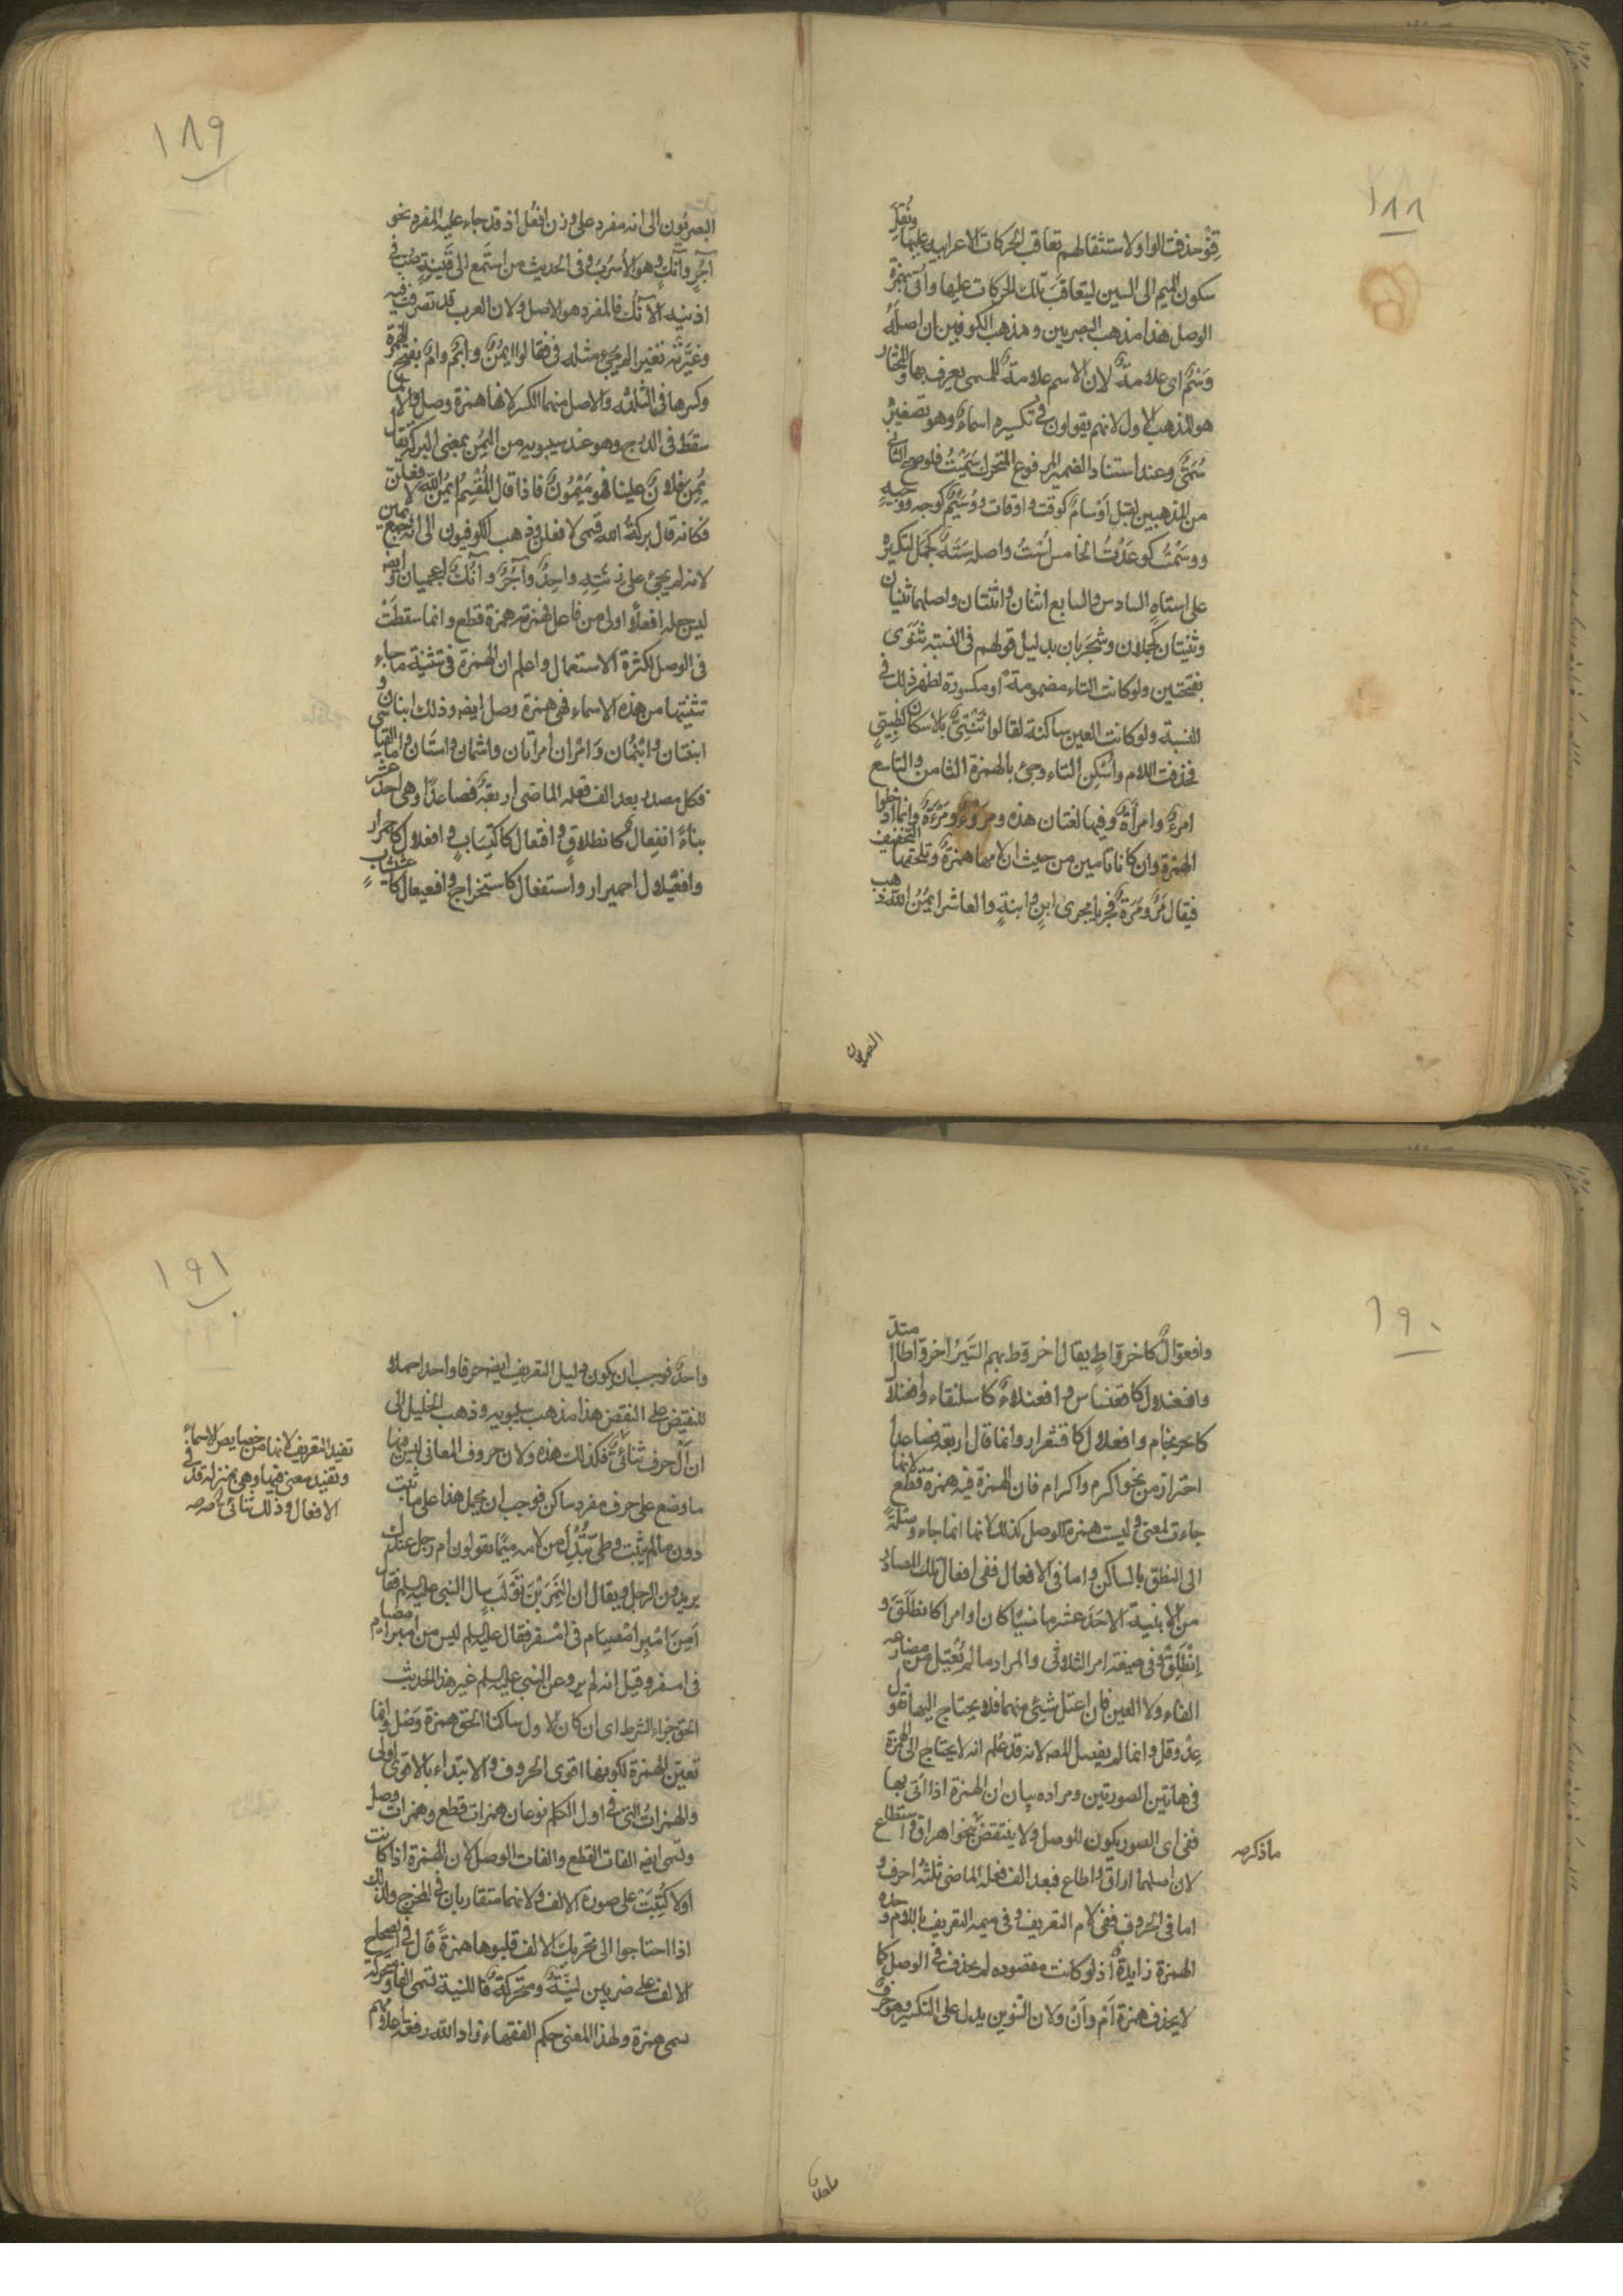 ١٨٨
قنو حذفت الواو لاستثقالهم تعاقب الحركات الاعرابية عليها ونقل
سكون الميم الى السين ليتعاقب تلك الحركات عليها واتى بهمزة
الوصل هذا مذهب البصريين ومذهب الكوفيين ان اصله
وسم اى علامة لان الاسم علامة للمسمى يعرف بها والمختار
هو المذهب الاول لانهم يقولون فى تكسيره اسماء وهو تصغيره
سمى وعند استناد الضمير المرفوع المتحرك سميت فلو صح الثانى
من المذهبين لقيل اوسام كوقت واوقات ووسيم كوجه ووجيه
ووسمت كوعدت الخامس است واصله سته كجمل لتكسيره
على استاه السادس والسابع اثنان واثنتان واصلهما ثنيان
وثنيتان كجملان وشجرتان بدليل قولهم فى النسبة ثنوى
بفتحتين ولو كانت الثاء مضمومة او مكسورة لظهر ذلك فى
النسبة ولو كانت العين ساكنة لقالوا ثنيى بالاسكان كظبيى
فحذفت اللام واسكن الثاء وجئ بالهمزة الثامن والتاسع
امرء وامرأة وفيها لغتان هذه ومرء ومرءة وانما ادخلوا
الهمزة وان كانا تامين من حيث ان لامها همزة ويلحقها التخفيف
فيقال مر ومرة فجريا مجرى ابن وابنة والعاشر ايمن الله ذهب
البصريون
١٨٩
البصريون الى انه مفرد على وزن افعل اذ قد جاء عليه المفرد نحو
آجر وآنك وهو الاسرب وفى الحديث من استمع الى قينة صب فى
اذنيه الآنك فالمفرد هو الاصل ولان العرب قد تصرفت فيه
وغيرته تغييرا لم يجئ مثله فى فقالوا ايمن وايم وام بفتح الهمزة
وكسرها فى الثلثة والاصل منهما الكسر لانها همزة وصل والا لما
سقط فى الدرج وهو عند سيبويه من اليمن بمعنى البركة يقال
يمن فلان علينا فهو ميمون فاذا قال المقسم ايمن الله لافعلن
فكانه قال بركة الله قسمى لافعلن وذهب الكوفيون الى انه جمع يمين
لانه لم يجئ على زنته واحد وآجر وآنك اعجميان وايضا
ليس جعله افعلا اولى من فاعل فهمزته همزة قطع وانما سقطت
فى الوصل لكثرة الاستعمال واعلم ان الهمزة فى تثنية ما جاء
تثنيتها من هذه الاسماء فهى همزة وصل ايضا وذلك ابنان و
ابنتان وابنمان وامران امرأتان واسمان واستان واما القياسى
فكل مصدر بعد الف فعله الماضى اربعة فصاعدا وهى احد عشر
بناء انفعال كانطلاق وافتعال كاكتساب وافعلال كاحمرار
وافعيلال احميرار واستفعال كاستخراج وافعيعال كاعشيشاب
١٩٠
وافعوال كاخرواط يقال اخروط بهم السير اخرواطا امتد
وافعنلال كاقعنساس وافعنلاء كاسلنقاء وافعنلال
كاحرنجام وافعلال كاقشعرار وانما قال اربعة فصاعدا
احترازا من نحو اكرم واكرام فان الهمزة فيه همزة قطع لانها
جاءت لمعنى وليست همزة الوصل كذلك لانها انما جاء وصلة
الى النطق بالساكن واما فى الافعال ففى افعال تلك المصادر
من الابنية الاحد عشر ماضيا كان او امرا كانطلق و
انطلق وفى صيغة امر الثلاثى والمراد ما لم يعتل من مضارعه
الفاء ولا العين فان اعتل شيئ منهما فلا يحتاج اليها تقول
عد وقل وانما لم يفصل المص لانه قد علم انه لا يحتاج الى الهمزة
فى هاتين الصورتين ومراده بيان ان الهمزة اذا اتى بها
ففى اى الصور يكون للوصل ولا ينتقض بنحو اهراق واسطاع
ما ذكره
لان اصلهما اراق واطاع فبعد الف فعله الماضى ثلثة احرف و
اما فى الحروف ففى لام التعريف وفى ميمه التعريف باللام وحده
الهمزة زايدة اذ لو كانت مقصوده لم يحذف فى الوصل كما
لا يحذف همزة ام وان ولان التنوين يدل على التنكير وهو حرف
واحد
١٩١
واحد فوجب ان يكون دليل التعريف ايضا حرفا واحدا حملا
للنقيض على النقيض هذا مذهب سيبويه وذهب الخليل الى
ان ال حرف ثنائى فكذلك هذه ولان حروف المعانى ليس منها
ما وضع على حرف مفرد ساكن فوجب ان يحمل هذا على ما ثبت
دون ما لم يثبت وطى تبدل من لامه ميما يقولون ام رجل عندك
يريدون الرجل ويقال ان النمر بن تولب سال النبى عليه السلم فقال
أمن امبر امصيام فى امسفر فقال عليه السلم ليس من امبر امصيام
فى امسفر وقيل انه لم يرو عن النبى عليه السلم غير هذا الحديث
الحق جزاء الشرط اى ان كان الاول ساكنا الحق همزة وصل وانما
تعين الهمزة لكونها اقوى الحروف والابتداء بالاقوى اولى
والهمزات التى فى اول الكلم نوعان همزات قطع وهمزات وصل
وتسمى ايضا الفات القطع والفات الوصل لان الهمزة اذا كانت
اولا كتبت على صورة الالف ولانهما متقاربان فى المخرج ولذلك
اذا احتاجوا الى تحريك الالف قلبوها همزة قال فى الصحاح
الالف على ضربين لينة ومتحركة فاللينة تسمى الفا والمتحركة
سمى همزة ولهذا المعنى حكم الفقهاء زاد الله رفعة اعلامهم
تفيد التعريف لانها من خصايص الاسماء
وتفيد معنى فيها وهى بمنزلة قد فى
الافعال وذلك ثنائى